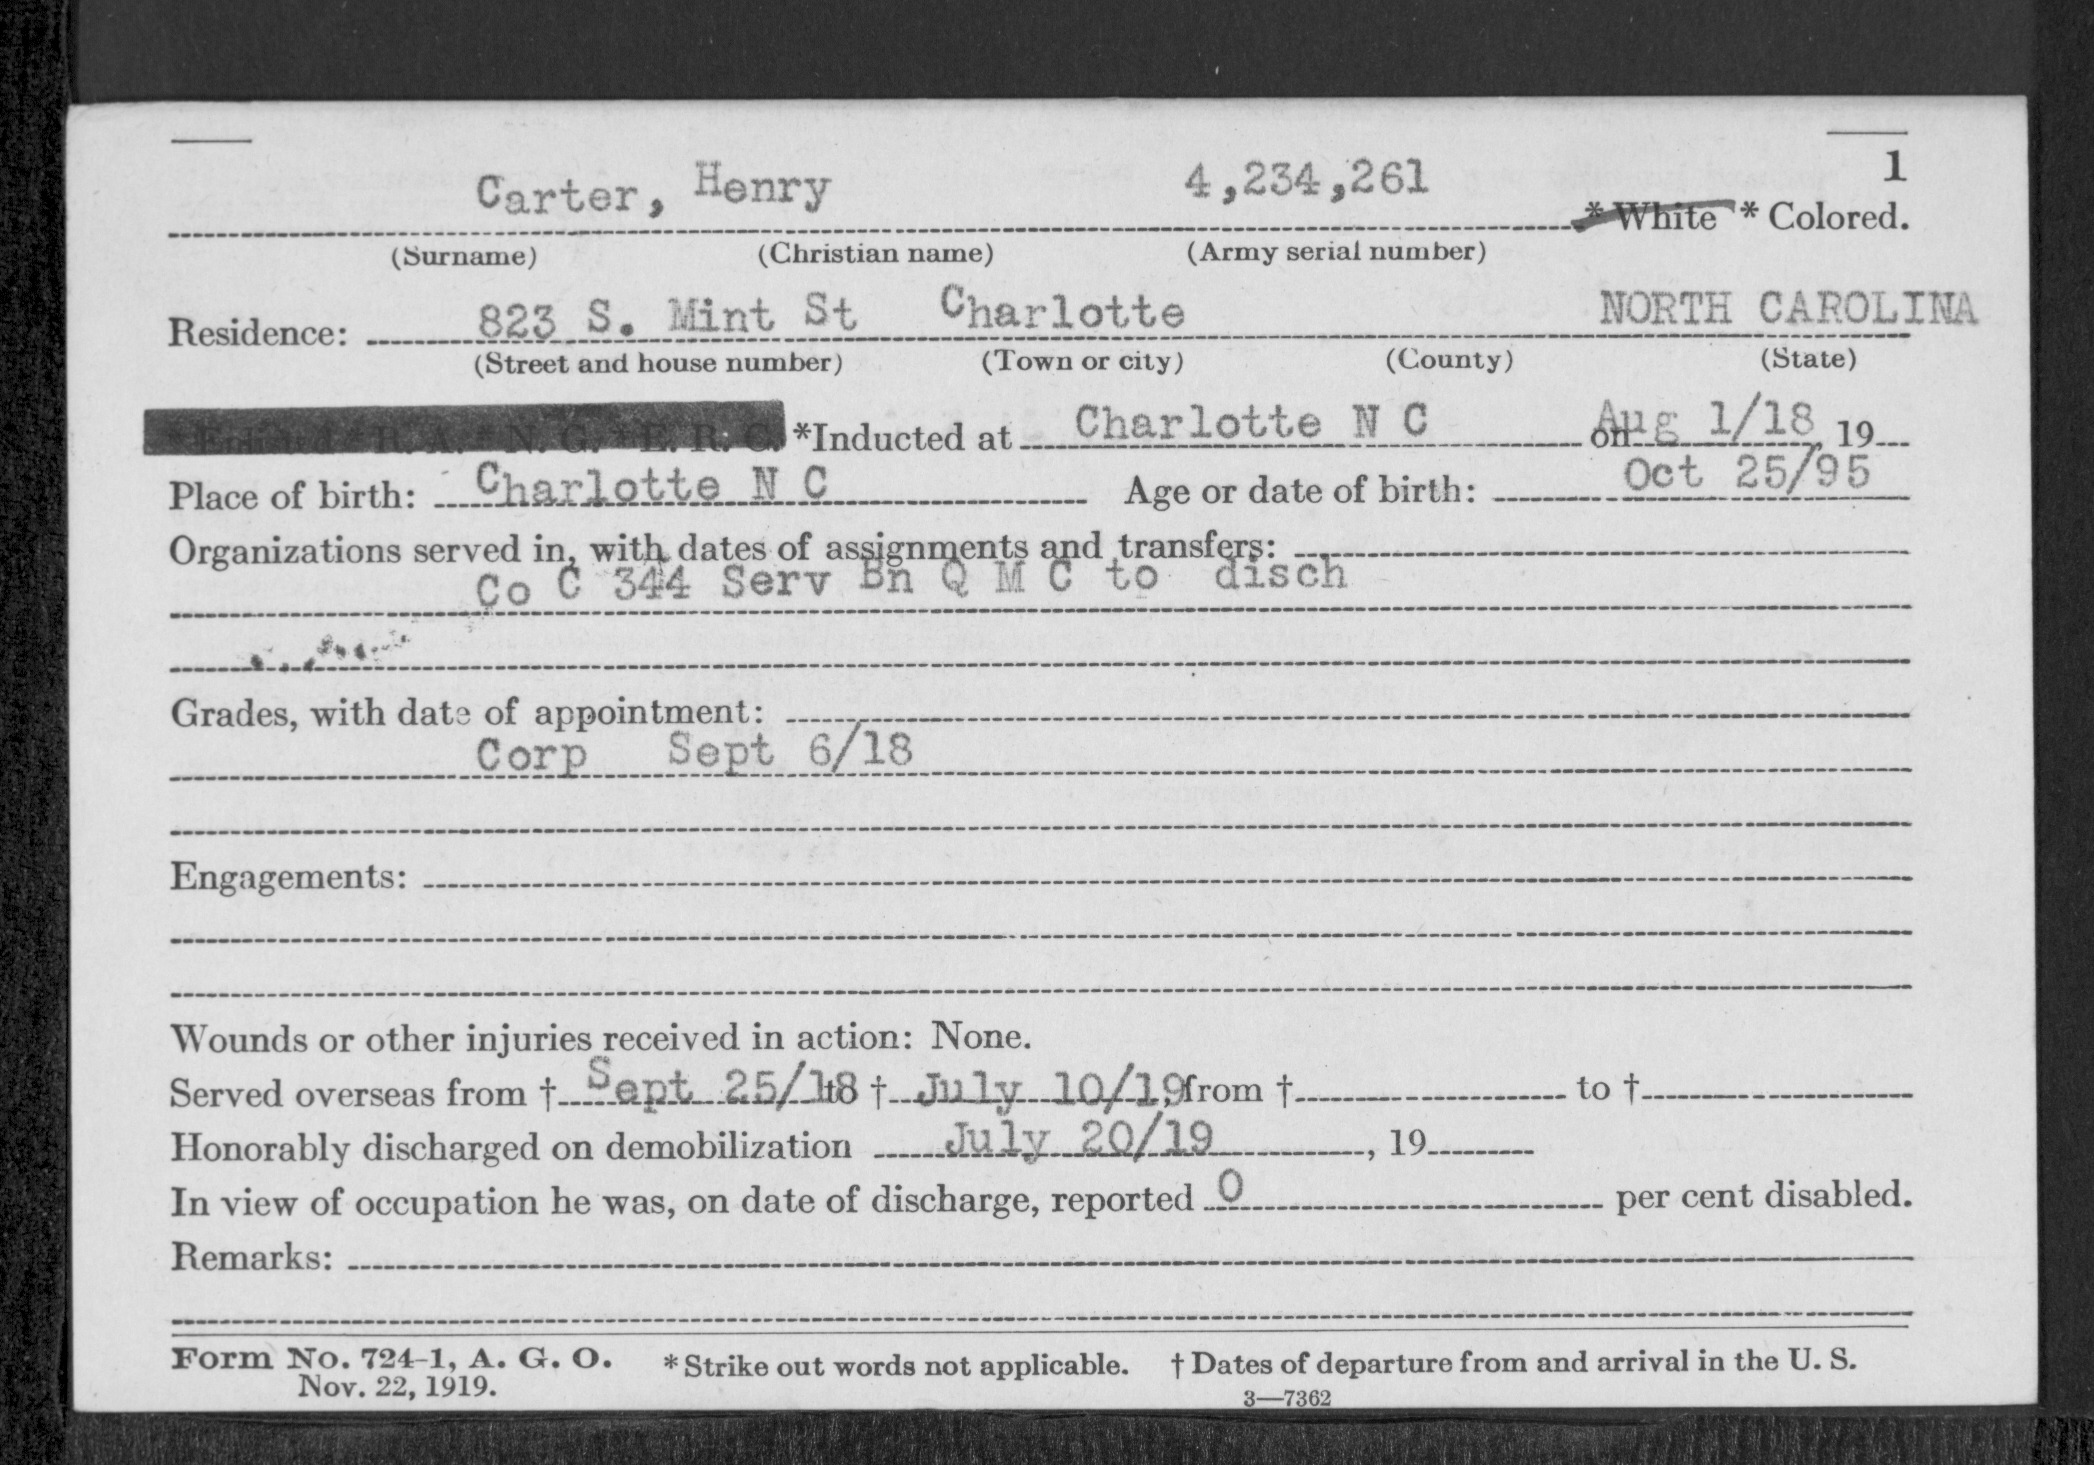 1
Carter, Henry 4,234,261 * White * Colored.
(Surname) (Christian name) (Army serial number)
Residence: 823 S. Mint St Charlotte NORTH CAROLINA
(Street and house number) (Town or city) (County) (State)
* Enlisted * R. A. * N. G. * E. R. C. *Inducted at Charlotte N C on Aug 1/18, 19
Place of birth: Charlotte N C Age or date of birth: Oct 25/95
Organizations served in, with dates of assignments and transfers:
Co C 344 Serv Bn Q M C to disch
Grades, with date of appointment:
Corp Sept 6/18
Engagements:
Wounds or other injuries received in action: None.
Served overseas from † Sept 25/18 to † July 10/19, from † to †
Honorably discharged on demobilization July 20/19, 19
In view of occupation he was, on date of discharge, reported 0 per cent disabled.
Remarks:
Form No. 724-1, A. G. O. * Strike out words not applicable. † Dates of departure from and arrival in the U. S.
Nov. 22, 1919. 3—7362